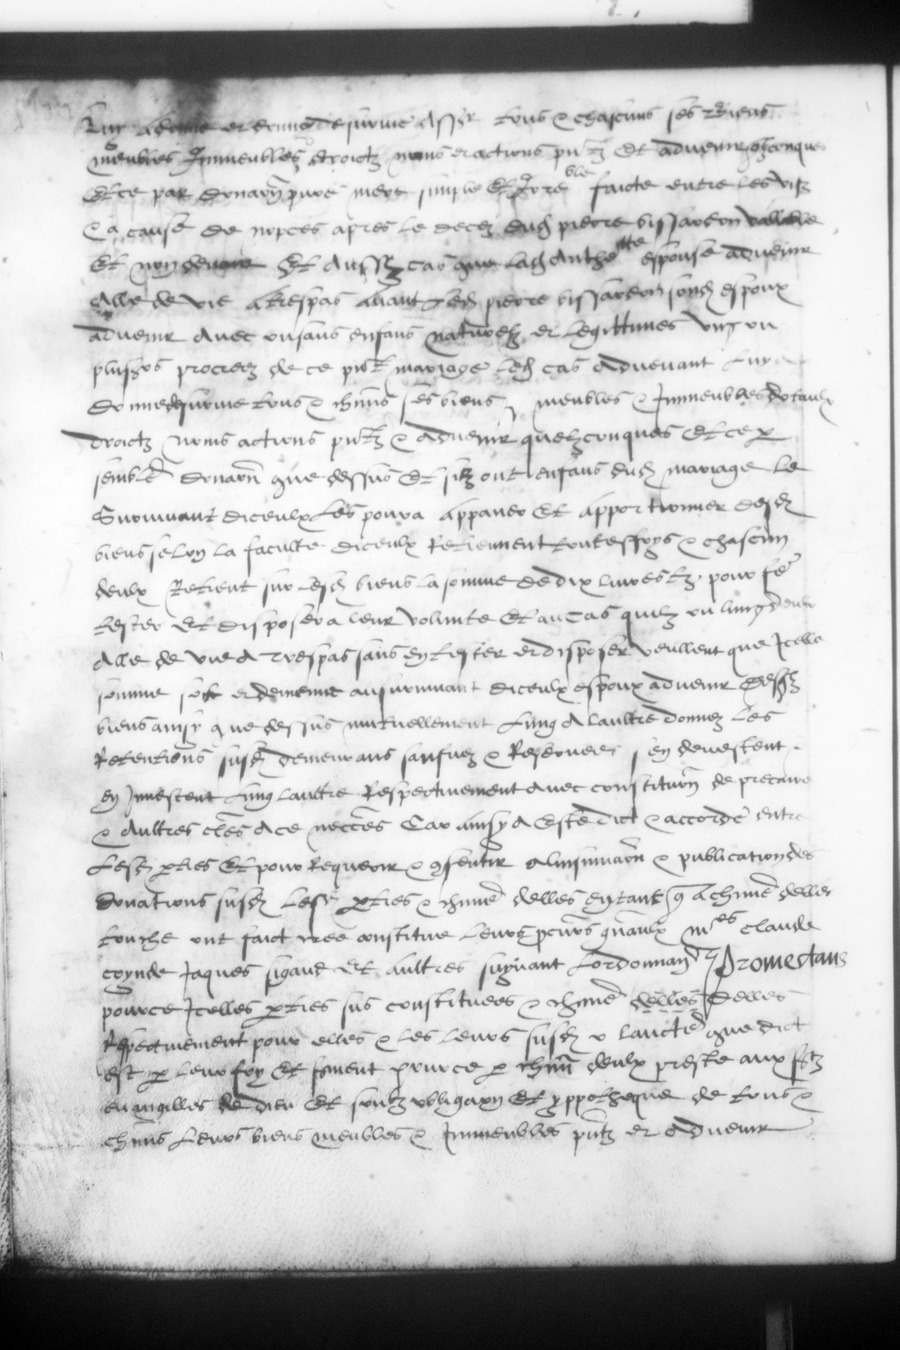 luy a donne et donne desurvie assr tous & chascuns ses biens
meubles Immeubles droictz noms et actions pntz Et advenir qlzconques
Et ce par donaon pure mere simple Et Irre ble faicte entre les vifz
& a cause de nopces apres le decez dud pierre bissardon vallable
Et non devant Et Aussy cas que lad Anthtte espouse advenir
Alle de vie a trespas avant led pierre bissardon sond espoux
advenir avec ou sans enfans naturelz et legittimes ung ou
plusrs procreez de ce pnt mariage led cas advenant luy a
donne desurvie tous & chuns ses biens meubles & Immeubles
droictz noms actions pntz & advenir quelzconques Et ce p
semble donaon que dessus Et silz ont enfans dud mariage le
Survivant diceulx les pourra appaner Et apportionner desd
biens selon la faculte diceulx Retiennent touteffoys & chascun
deulx Retient sur lesd biens la somme de dix livres tz pour
tester Et disposer a leur volunte Et au Cas quilz ou lung deulx
Alle de vie a trespas sans en tester et disposer veullent que Icelle
somme soit et demeure au survivant diceulx espoux advenir
biens ainsy que dessus mutuellement lung a laultre donnez les
Retentions susd demeurans saufves & Reservees sen devestent
en Investent lung laultre Respectivement avec constitution de precaire
& aultres clles a ce neccres Car ainsy a este dict & accorde entre
lesd pties Et pour Requerir & qsentir a linsinuaon & publication des
donations susd lesd pties & chune delles en tant q a chune delles
touche ont faict cree constitue leurs pcurs gnaulx mes claude
coynde Jaques sigaud Et aultres suyvant lordonnan Promectans
pource Icelles pties sus constituees & chune delles Delles
Respectivement pour elles & les leurs susd & lauctte que dict
est p leur foy Et serment pource p chun deulx preste aux sts
evangilles de dieu Et soubz obligaon Et yppotheque de tous &
chuns leurs biens meubles & Immeubles pntz et advenir